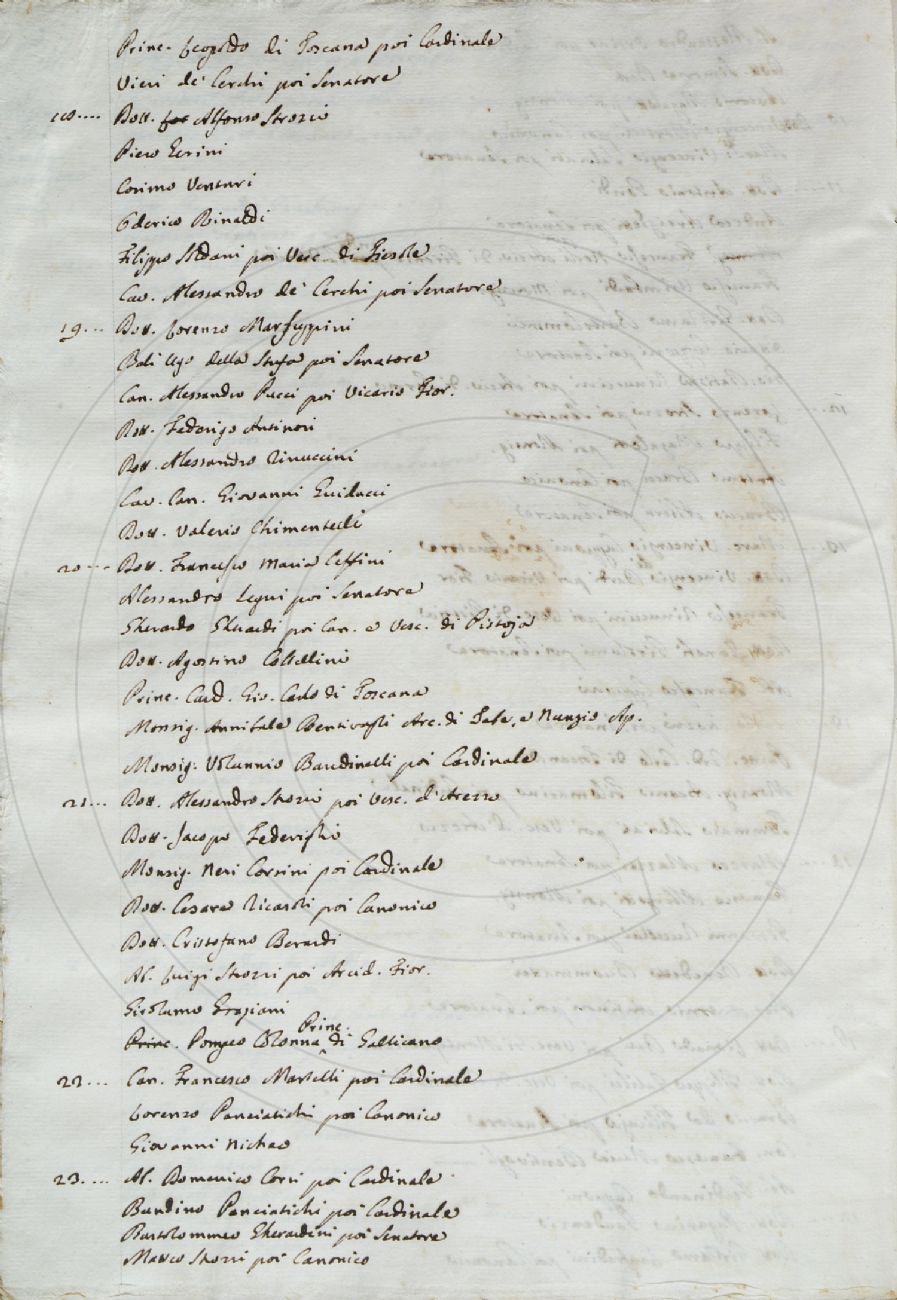 Princ. Leopoldo di Toscana poi Cardinale
Vieri de' Cerchi poi Senatore
18.... Dott. Alfonso Strozzi
Piero
Cosimo Venturi
Oderico Rinaldi
Filippo Soldani poi Vesc. di Fiesole
Cav. Alessandro de' Cerchi poi Senatore
19... Dott. Lorenzo Marsuppini
Bali Ugo della Stufa poi Senatore
Can. Alessandro Pucci poi Vicario Fior.
Dott. Federigo Antinori
Dott. Alessandro Rinuccini
Cav. Can. Giovanni Guiducci
Dott. Valerio Chimentelli
20... Dott. Francesco Maria Ceffini
Alessandro Segni poi Senatore
Gherardo Gherardi poi Can. e Vesc. di Pistoja
Dott. Agostino Coltellini
Princ. Card. Gio. Carlo di Toscana
Monsig. Annibale Bentivogli Arc. di Tebe, e Nunzio Ap.
Monsig. Volunnio Bandinelli poi Cardinale
21... Dott. Alessandro Strozzi poi Vesc. d'Arezzo
Dott. Jacopo Federighi
Monsig. Neri Corsini poi Cardinale
Dott. Cesare Ricasoli poi Canonico
Dott. Cristofano Berardi
Ab. Luigi Strozzi poi Arcid. Fior.
Girolamo Graziani
Princ. Pompeo Colonna Princ. di Gallicano
22... Can. Francesco Martelli poi Cardinale
Lorenzo Panciatichi poi Canonico
Giovanni
23.... Ab. Domenico Corsi poi Cardinale
Bandino Panciatichi poi Cardinale
Bartolommeo Gherardini poi Senatore
Marco Strozzi poi Canonico